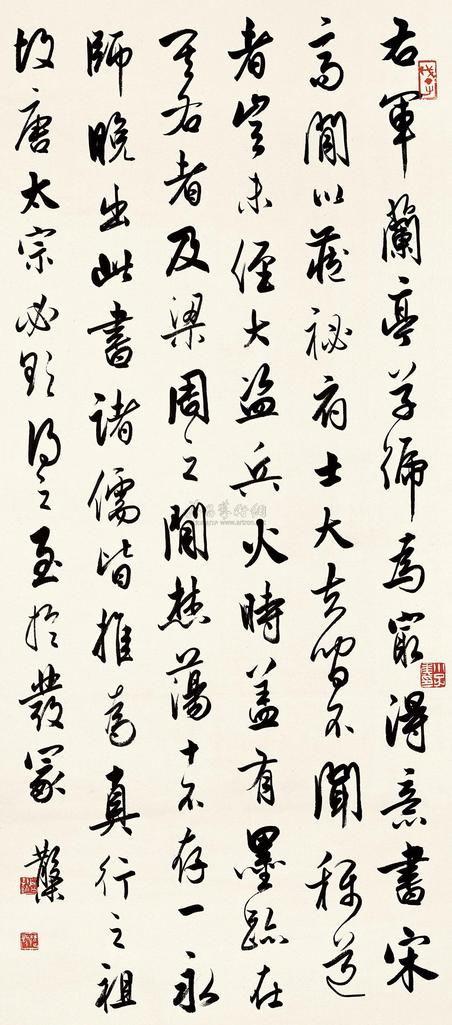 右軍蘭亭草號為最得意書宋
齊間以藏祕府士大夫間不聞稱道
者豈未經大盜兵火時蓋有墨跡在
其右者及梁周之間焚蕩十不存一永
師晚出此書諸儒皆推為真行之祖
故唐太宗必欲得之至於發冢